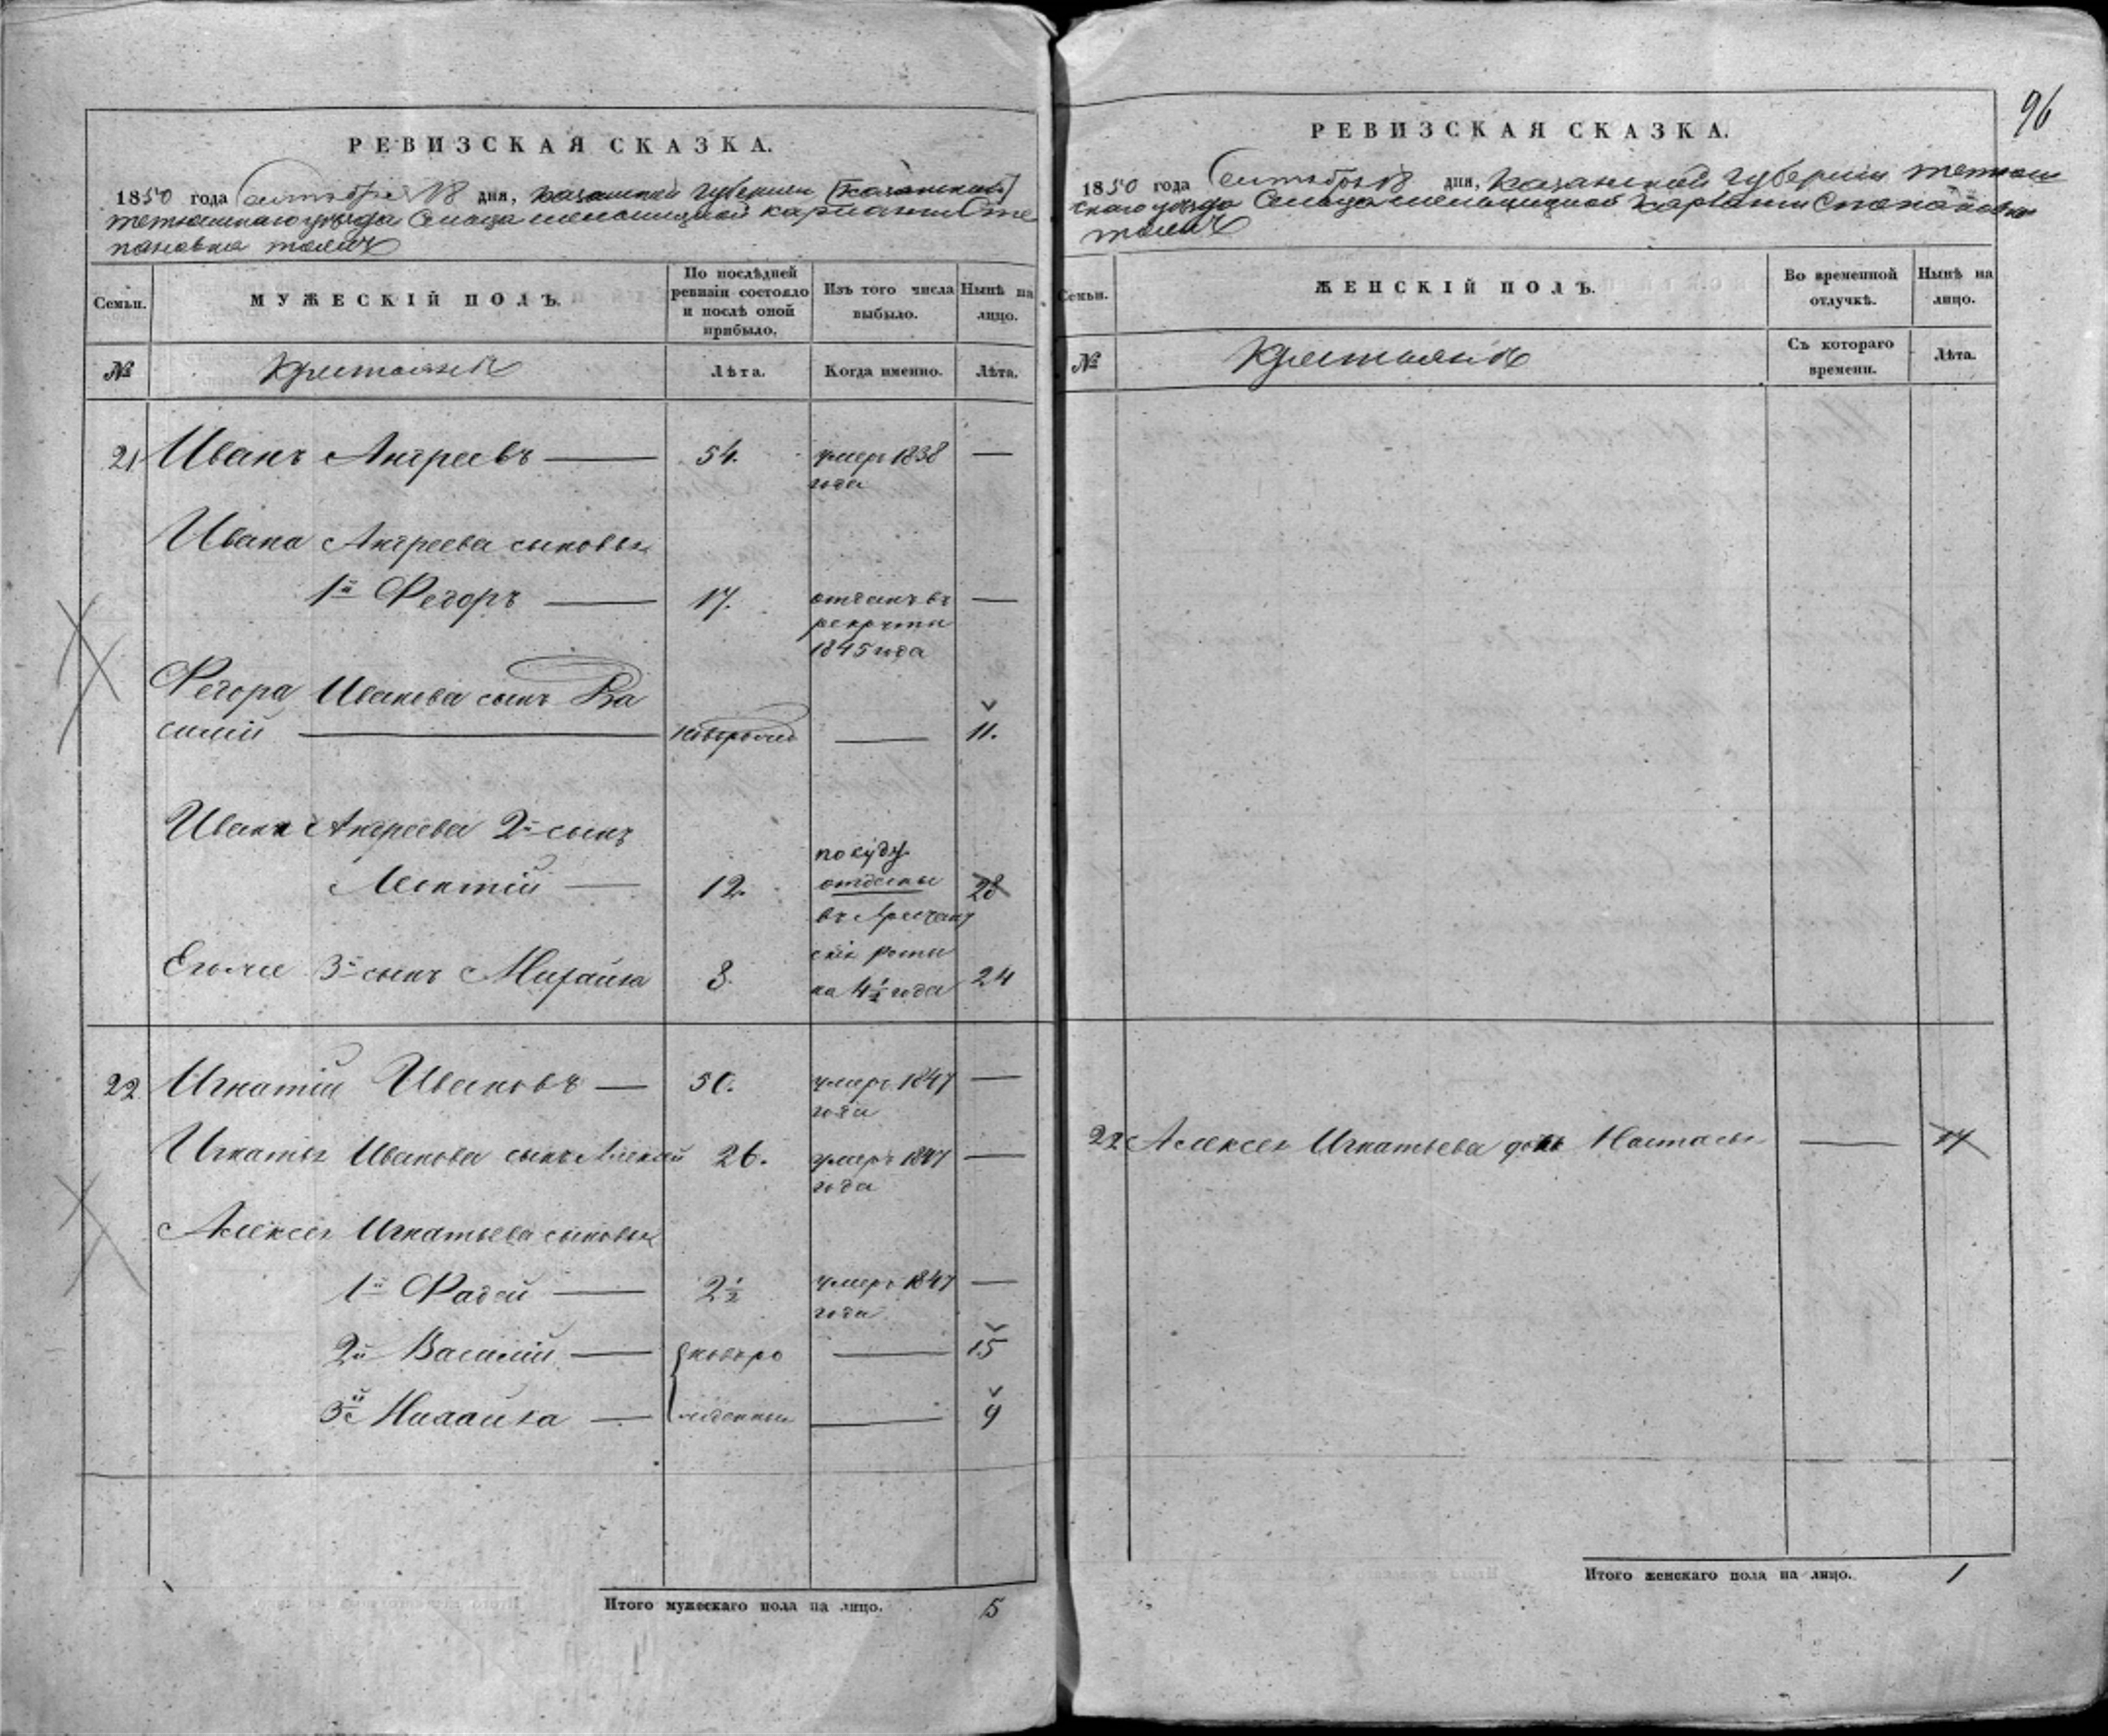 96
РЕВИЗСКАЯ СКАЗКА.
1850 года Сентября 18 дня, Казанской губернии [Казанской]
тетюшскаго уезда Сельца
пановка тожъ
Семьи.
МУЖЕСКІЙ ПОЛЪ.
По послѣдней ревизіи состояло и послѣ оной прибыло.
Изъ того числа выбыло.
Нынѣ на лицо.
№
Крестьянъ
Лѣта.
Когда именно.
Лѣта.
21 Иванъ Андреевъ — 54. умеръ 1838 —
года
Ивана Андреева сыновья
1й Федоръ — 17. отданъ въ —
рекруты
1845 года
Федора Иванова сынъ Ва
силий — новорожд — 11.
Ивана Андреева 2й сынъ
Леонтій — 12. по суду отданы 28
въ Арестант
Егоже 3й сынъ Михайла 8. скія роты
на 4½ года 24
22 Игнатій Ивановъ — 50. умеръ 1847 —
года
Игнатья Иванова сынъ Алексей 26. умеръ 1847 —
года
Алексея Игнатьева сыновья
1й Фадей — 2½ умеръ 1847 —
года
2й Василий — новоро — 15
3й Николайка — жденныи — 9
Итого мужескаго пола на лицо. 5
РЕВИЗСКАЯ СКАЗКА.
1850 года Сентября 18 дня, Казанской Губернии Тетюш
скаго уезда Сельца
тожъ
Семьи.
ЖЕНСКІЙ ПОЛЪ.
Во временной отлучкѣ.
Нынѣ на лицо.
№
Крестьянъ
Съ котораго времени.
Лѣта.
22 Алексея Игнатьева дочь Настасья — 14
Итого женскаго пола на лицо. 1